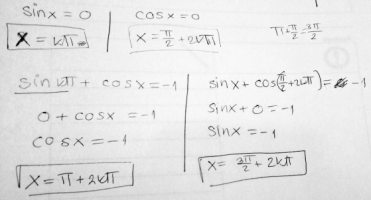 sinx = 0
x = kπ
cosx = 0
x = π/2 + 2kπ
π + π/2 = 3π/2
sin kπ + cosx = -1
0 + cosx = -1
cosx = -1
x = π + 2kπ
sinx + cos(π/2 + 2kπ) = -1
sinx + 0 = -1
sinx = -1
x = 3π/2 + 2kπ